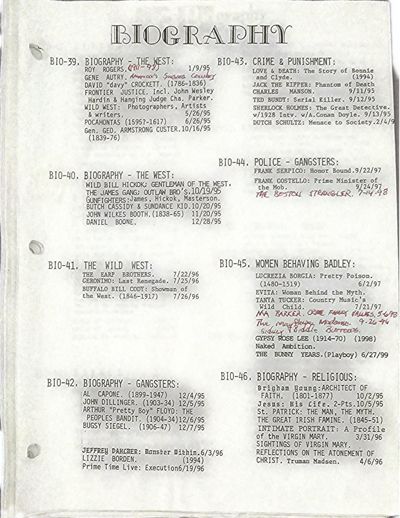 BIOGRAPHY
BIO-39. BIOGRAPHY - THE WEST:
ROY ROGERS. (1911-98) 1/9/95
GENE AUTRY. America's Singing Cowboy
DAVID "davy" CROCKETT. (1786-1836)
FRONTIER JUSTICE. Incl. John Wesley
Hardin & Hanging Judge Cha. Parker.
WILD WEST: Photographers, Artists
& writers. 5/26/95
POCAHONTAS (1595?-1617) 6/26/95
Gen. GEO. ARMSTRONG CUSTER. 10/16/95
(1839-76)
BIO-40. BIOGRAPHY - THE WEST:
WILD BILL HICKOK: GENTLEMAN OF THE WEST.
THE JAMES GANG: OUTLAW BRO'S. 10/19/95
GUNFIGHTERS: James, Hickok, Masterson.
BUTCH CASSIDY & SUNDANCE KID. 10/20/95
JOHN WILKES BOOTH. (1838-65) 11/20/95
DANIEL BOONE. 12/28/95
BIO-41. THE WILD WEST:
THE EARP BROTHERS. 7/22/96
GERONIMO: Last Renegade. 7/25/96
BUFFALO BILL CODY: Showman of
the West. (1846-1917) 7/26/96
BIO-42. BIOGRAPHY - GANGSTERS:
AL CAPONE. (1899-1947) 12/4/95
JOHN DILLINGER. (1903-34) 12/5/95
ARTHUR "Pretty Boy" FLOYD: THE
PEOPLES BANDIT. (1904-34) 12/6/95
BUGSY SIEGEL. (1906-47) 12/7/95
JEFFREY DAHMER: Monster Within. 6/3/96
LIZZIE BORDEN. (1994)
Prime Time Live: Execution 6/19/96
BIO-43. CRIME & PUNISHMENT:
LOVE & DEATH: The Story of Bonnie
and Clyde. (1994)
JACK THE RIPPER: Phantom of Death
CHARLES MANSON. 9/11/95
TED BUNDY: Serial Killer. 9/12/95
SHERLOCK HOLMES: The Great Detective.
w/1928 Intv. w/A.Conan Doyle. 9/13/95
DUTCH SCHULTZ: Menace to Society.
BIO-44. POLICE - GANGSTERS:
FRANK SERPICO: Honor Bound. 9/22/97
FRANK COSTELLO: Prime Minister of
the Mob. 9/24/97
THE BOSTON STRANGLER
BIO-45. WOMEN BEHAVING BADLEY:
LUCREZIA BORGIA: Pretty Poison.
(1480-1519) 6/2/97
EVITA: Woman Behind the Myth.
TANYA TUCKER: Country Music's
Wild Child. 7/21/97
MA BARKER: CRIME FAMILY VALUES.
The Mayflower Madame.
Sidney Biddle Barrows.
GYPSY ROSE LEE (1914-70) (1998)
Naked Ambition.
THE BUNNY YEARS. (Playboy) 6/27/99
BIO-46. BIOGRAPHY - RELIGIOUS:
Brigham Young: ARCHITECT OF
FAITH. (1801-1877) 10/2/95
Jesus: His Life. 2-Pts. 10/5/95
St. PATRICK: THE MAN, THE MYTH.
THE GREAT IRISH FAMINE. (1845-51)
INTIMATE PORTRAIT: A Profile
of the VIRGIN MARY. 3/31/96
SIGHTINGS OF VIRGIN MARY.
REFLECTIONS ON THE ATONEMENT OF
CHRIST. Truman Madsen. 4/6/96